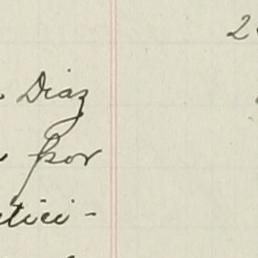 2
Diaz
por
tici-